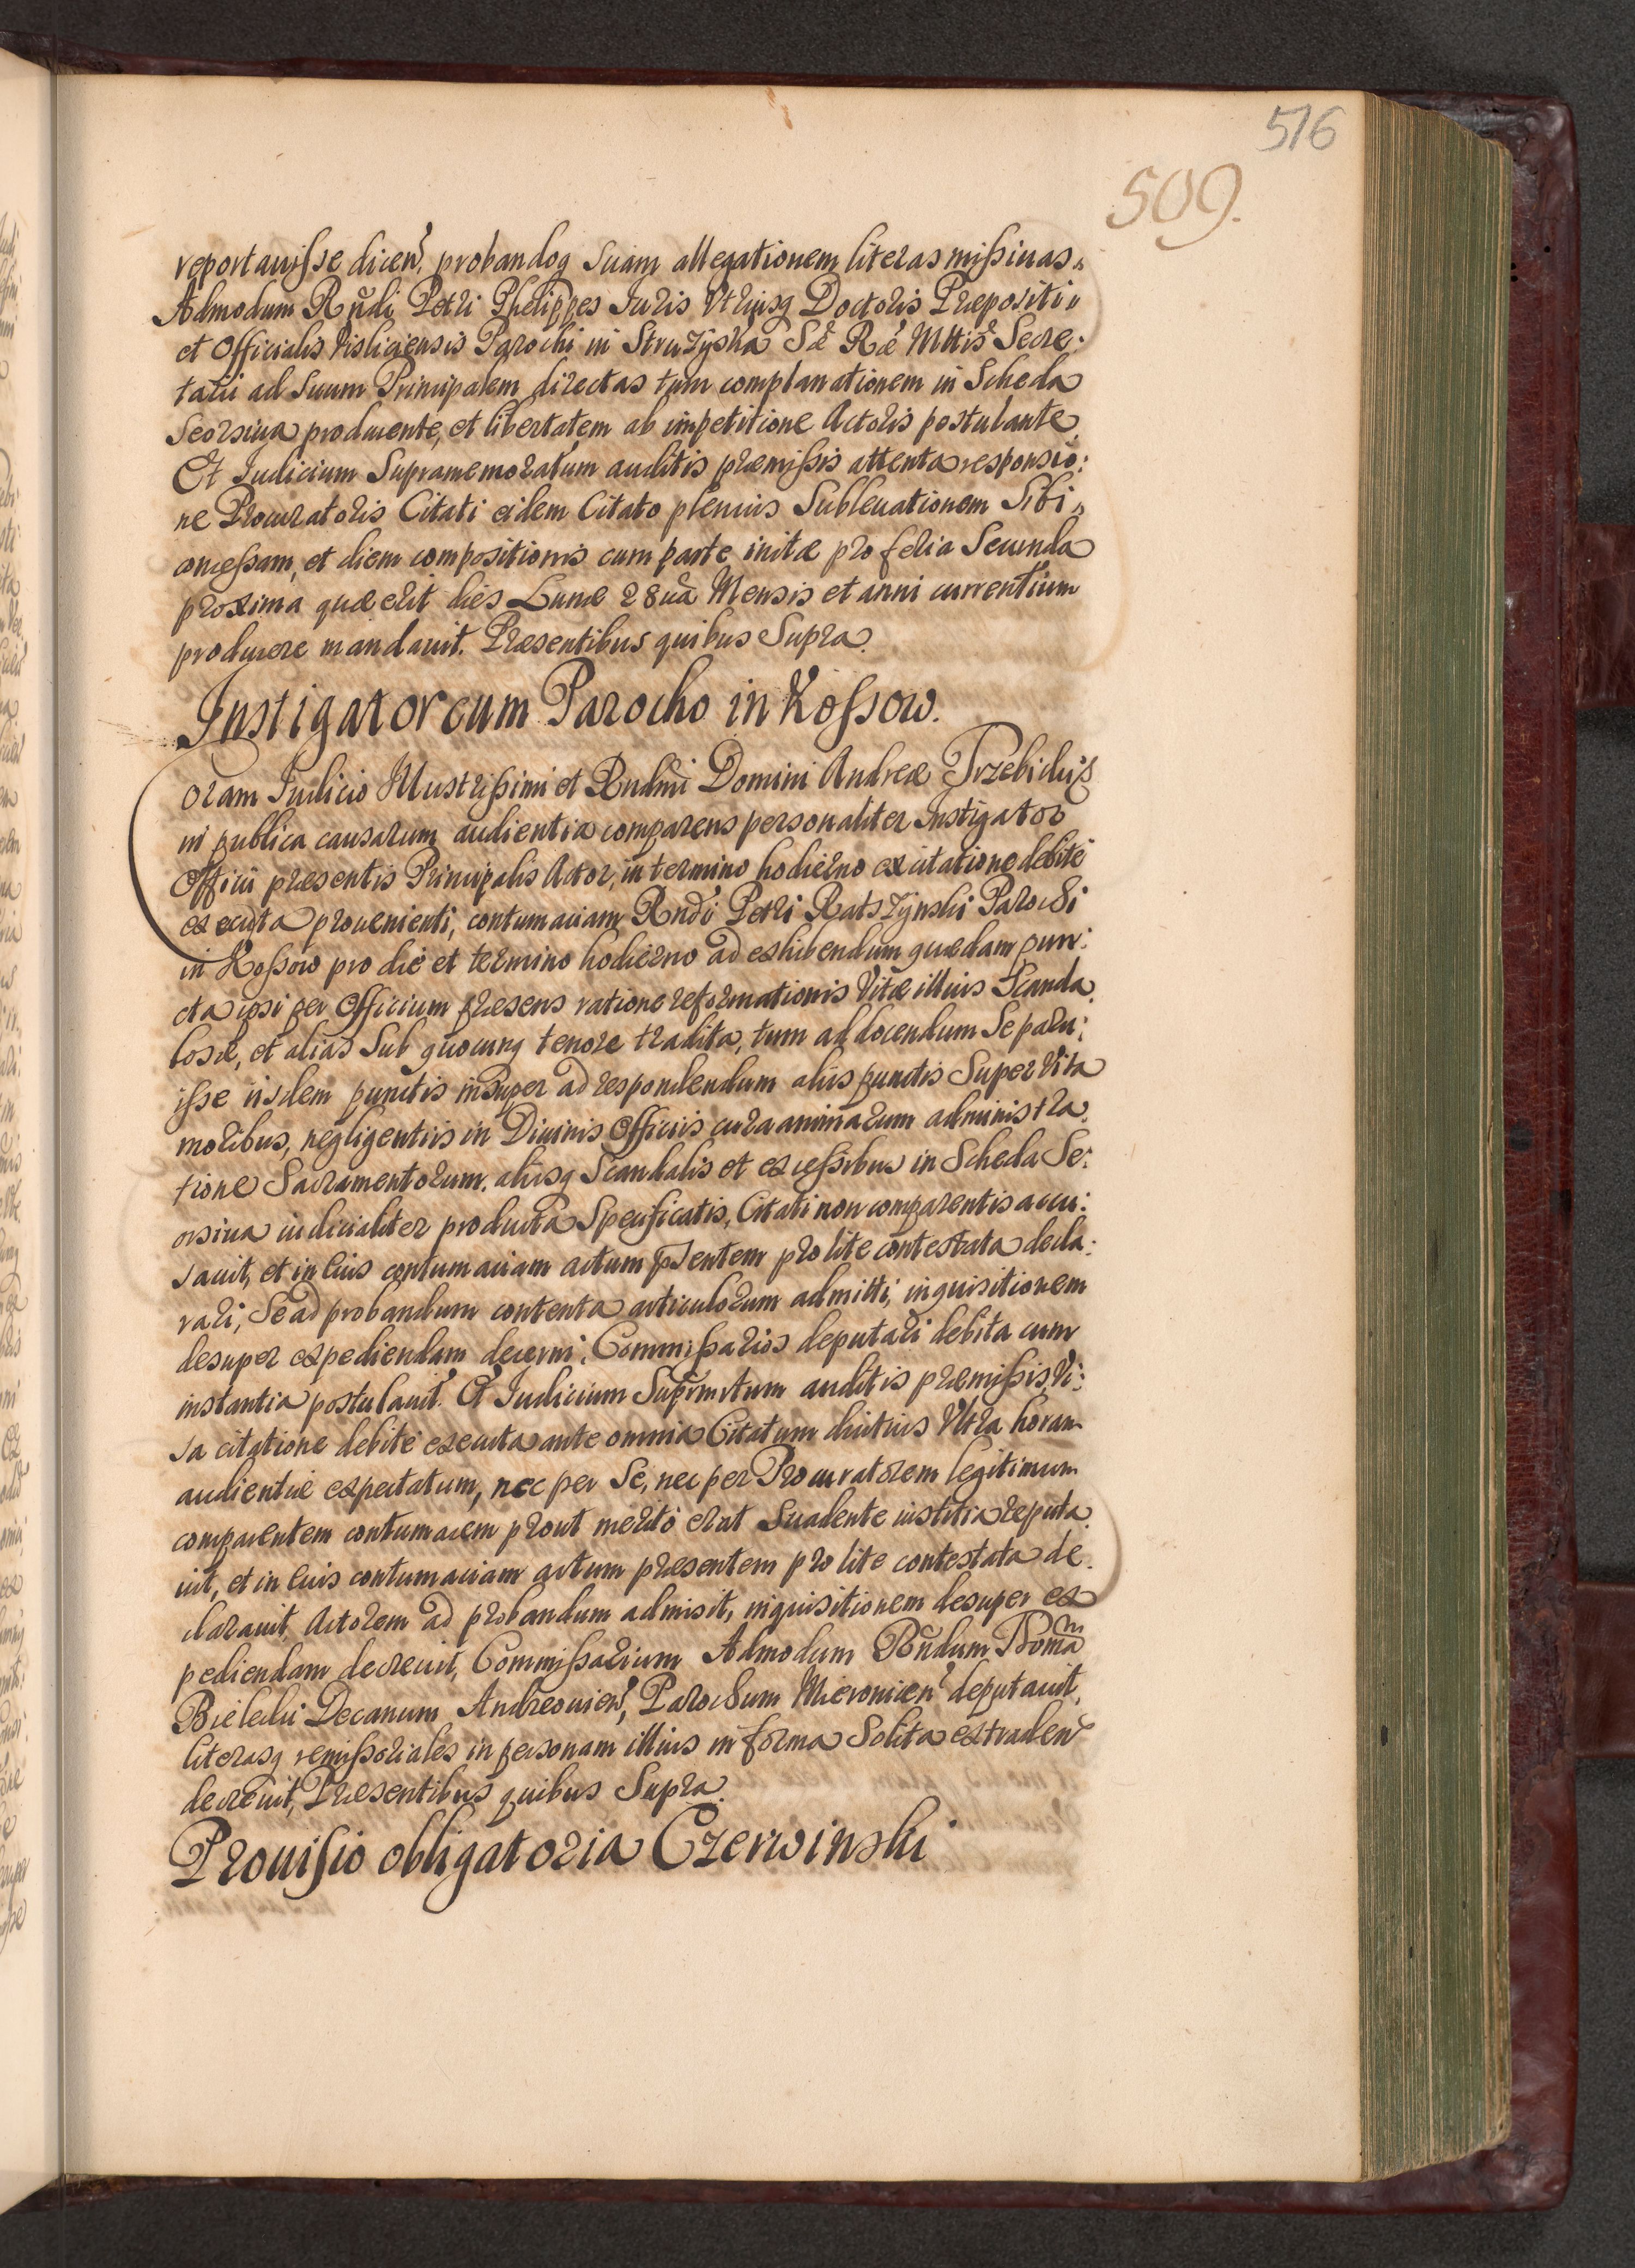 516
509.
reportauisse dicen̄, probandoq̄ Suam allegationem literas missiuas„
Admodum Rn̄di Petri Phelippes Iuris Vtriusq̄ Doctoris Præpositi„
et Officialis Visliciensis Parochi in Struzyska Sæ Ræ Mttis Secre:
tarii ad Suum Principalem directas tum complanationem in Scheda
Seorsiua producente, et libertatem ab impetitione Actoris postulante,
Et Iudicium Supramemoratum auditis præmissis attenta responsio:
ne Procuratoris Citati eidem Citato plenius Subleuationem Sibi„
concessam, et diem compositionis cum parte initæ pro feria Secunda
proxima quæ erit dies Lunæ 28ua Mensis et anni currentium
producere mandauit. Præsentibus quibus Supra.
Instigator cum Parocho in Kossow.
Coram Iudicio Illustrissimi et Rndmi Domini Andreæ Trzebicki
in publica causarum audientia comparens personaliter Instigator
Officii præsentis Principalis Actor, in termino hodierno ex citatione debite
executa prouenienti, contumaciam Rndi Petri Ratszynski Parochi
in Kossow pro die et termino hodierno ad exhibendum quædam pun:
cta ipsi per Officium præsens ratione reformationis Vitæ illius Scanda:
losæ, et alias Sub quocunq̄ tenore tradita, tum ad docendum Se paru:
isse iisdem punctis insuper ad respondendum aliis punctis Super Vita
moribus, negligentiis in Diuinis Officiis cura animarum administra:
tione Sacramentorum, aliisq̄ Scandalis et excessibus in Scheda Se:
orsiua iudicialiter producta Specificatis, Citati non comparentis accu:
sauit, et in Eius contumaciam actum p̄sentem pro lite contestata decla:
rari, Se ad probandum contenta articulorum admitti, inquisitionem
desuper expediendam decerni, Commissarios deputari debita cum
instantia postulauit. Et Iudicium Suprmrtum auditis præmissis, Vi:
sa citatione debite executa ante omnia Citatum diutius Vltra horam
audientiæ expectatum, nec per Se, nec per Procuratorem legitimum
comparentem contumacem prout merito erat Suadente iustitia reputa:
uit, et in Eius contumaciam actum præsentem pro lite contestata de:
clarauit, Actorem ad probandum admisit, inquisitionem desuper ex
pediendam decreuit, Commissarium Admodum Rn̄dum Thomam
Bielecki Decanum Andreouien̄, Parochum Mieronicen̄ deputauit,
literasq̄ remissoriales in personam illius in forma Solita extraden̄
decreuit, Præsentibus quibus Supra.
Prouisio obligatoria Czerwinski